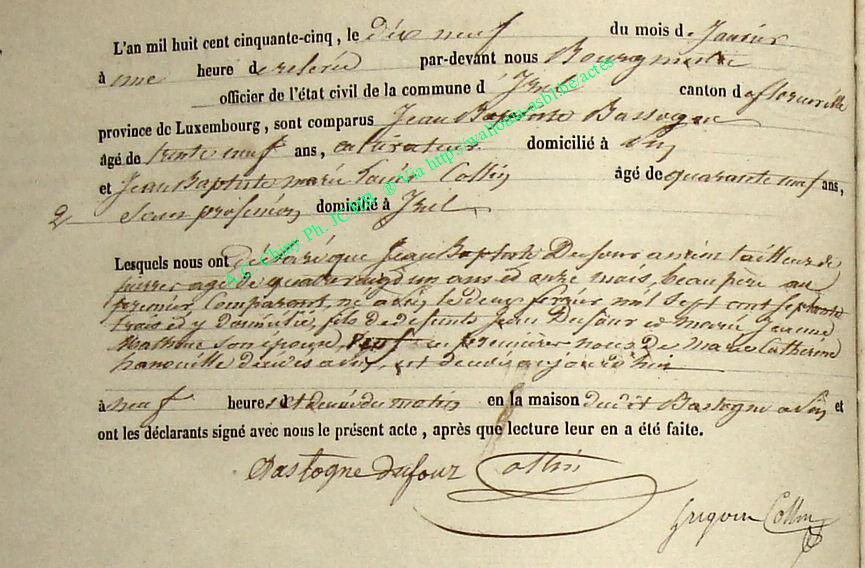 L'an mil huit cent cinquante-cinq, le dix neuf du mois d e Janvier
à une heure d e relevée par-devant nous Bourgmestre
officier de l'état civil de la commune d' Izel canton d e florenville
province de Luxembourg, sont comparus Jean Baptiste Bastogne
âgé de trente neuf ans, cultivateur domicilié à
et Jean Baptiste marie Collin âgé de quarante neuf ans,
sans profession domicilié à Izel
Lesquels nous ont déclaré que Jean Baptiste Dufour ancien tailleur de
pierres agé de quatre vingt un ans et onze mois, beau père au
premier Comparant, né a le deux février mil sept cent septante
trois et y domicilié, fils de defunts Jean Dufour et marie Jeanne
son épouse, veuf en premières noces de Marie Catherine
est décédé aujourd'hui
à neuf heures et demie du matin en la maison dudit Bastogne a et
ont les déclarants signé avec nous le présent acte, après que lecture leur en a été faite.
Bastogne dufour Collin
Collin
A.E. Ph. ® Via http://wallonia.asbl.be/actes